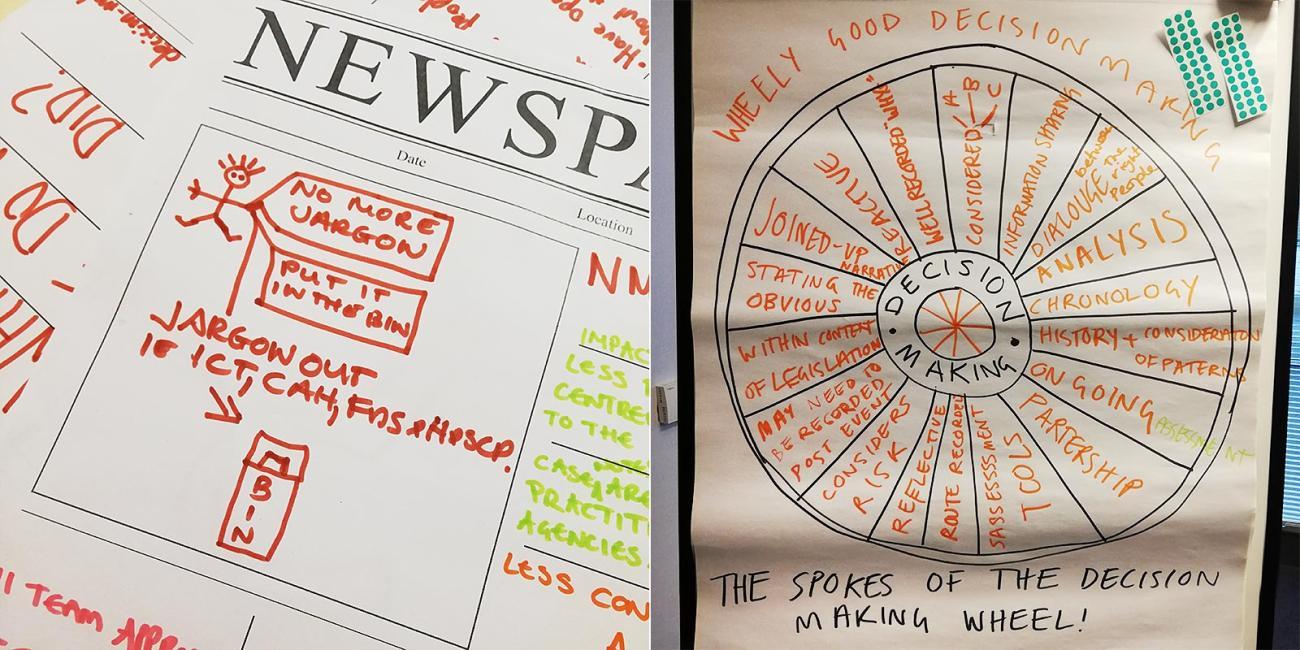 decision-m
DID?
DO
NEWSPA
Date
Location
NO MORE
JARGON
PUT IT
IN THE BIN
JARGON OUT
IF ICT, CAH, FDS & HPSCP.
BIN
NM
IMPAC
LESS
CENTRE
TO THE
CASE
PRACTIT
AGENCIES
LESS CON
A
TEAM APPR
WHEELY GOOD DECISION MAKING
DECISION
MAKING
CONSIDERED A B C
INFORMATION SHARING
DIALOUGE between the right people
ANALYSIS
CHRONOLOGY
HISTORY + CONSIDERATON
OF PATERNS
ON GOING ASSESSMENT
PARTERSHIP
TOOLS
SASSESSSMENT
ROUTE RECORDED
REFLECTIVE
CONSIDERS
RISK
MAY NEED TO
BE RECORDED
POST EVENT
WITHIN CONTEXT
OF LEGISLATION
STATING THE
OBVIOUS
JOINED-UP
NARRATIVE
REACTIVE
WELL RECORDED "WHY"
THE SPOKES OF THE DECISION
MAKING WHEEL!